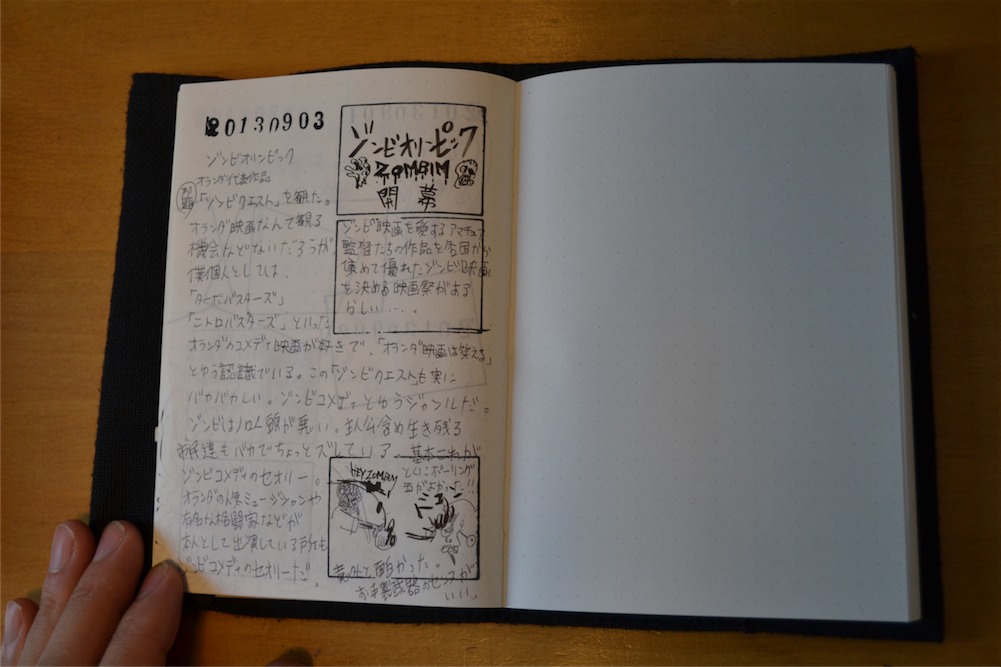 20130903
ゾンビオリンピック
オランダ代表作品
「ゾンビクエスト」を観た。
オランダ映画なんて観る
機会などないだろうが、
僕個人としては、
「ターボバスターズ」
「ニトロバスターズ」といった
オランダのコメディ映画が好きで、「オランダ映画は笑える」
とゆう認識でいる。この「ゾンビクエスト」も実に
バカバカしい。ゾンビコメディとゆうジャンルだ。
ゾンビはノロく頭が悪い。主人公含め生き残る
市民達もバカでちょっとズレしている、基本これが
ゾンビコメディのセオリー。
オランダの人気ミュージシャンや
有名な格闘家などが
本人として出演している所も
ゾンビコメディのセオリーだ。
ゾンビオリンピック
ZOMBIM
開幕
ゾンビ映画を愛するアマチュア
監督たちの作品を各国から
集めて優れたゾンビ映画
を決める映画祭がある
らしい・・・。
HEY ZOMBIM
とくにボーリング
玉がよかった!!
意外と面白かった。
お手製武器のセンスが
いい。